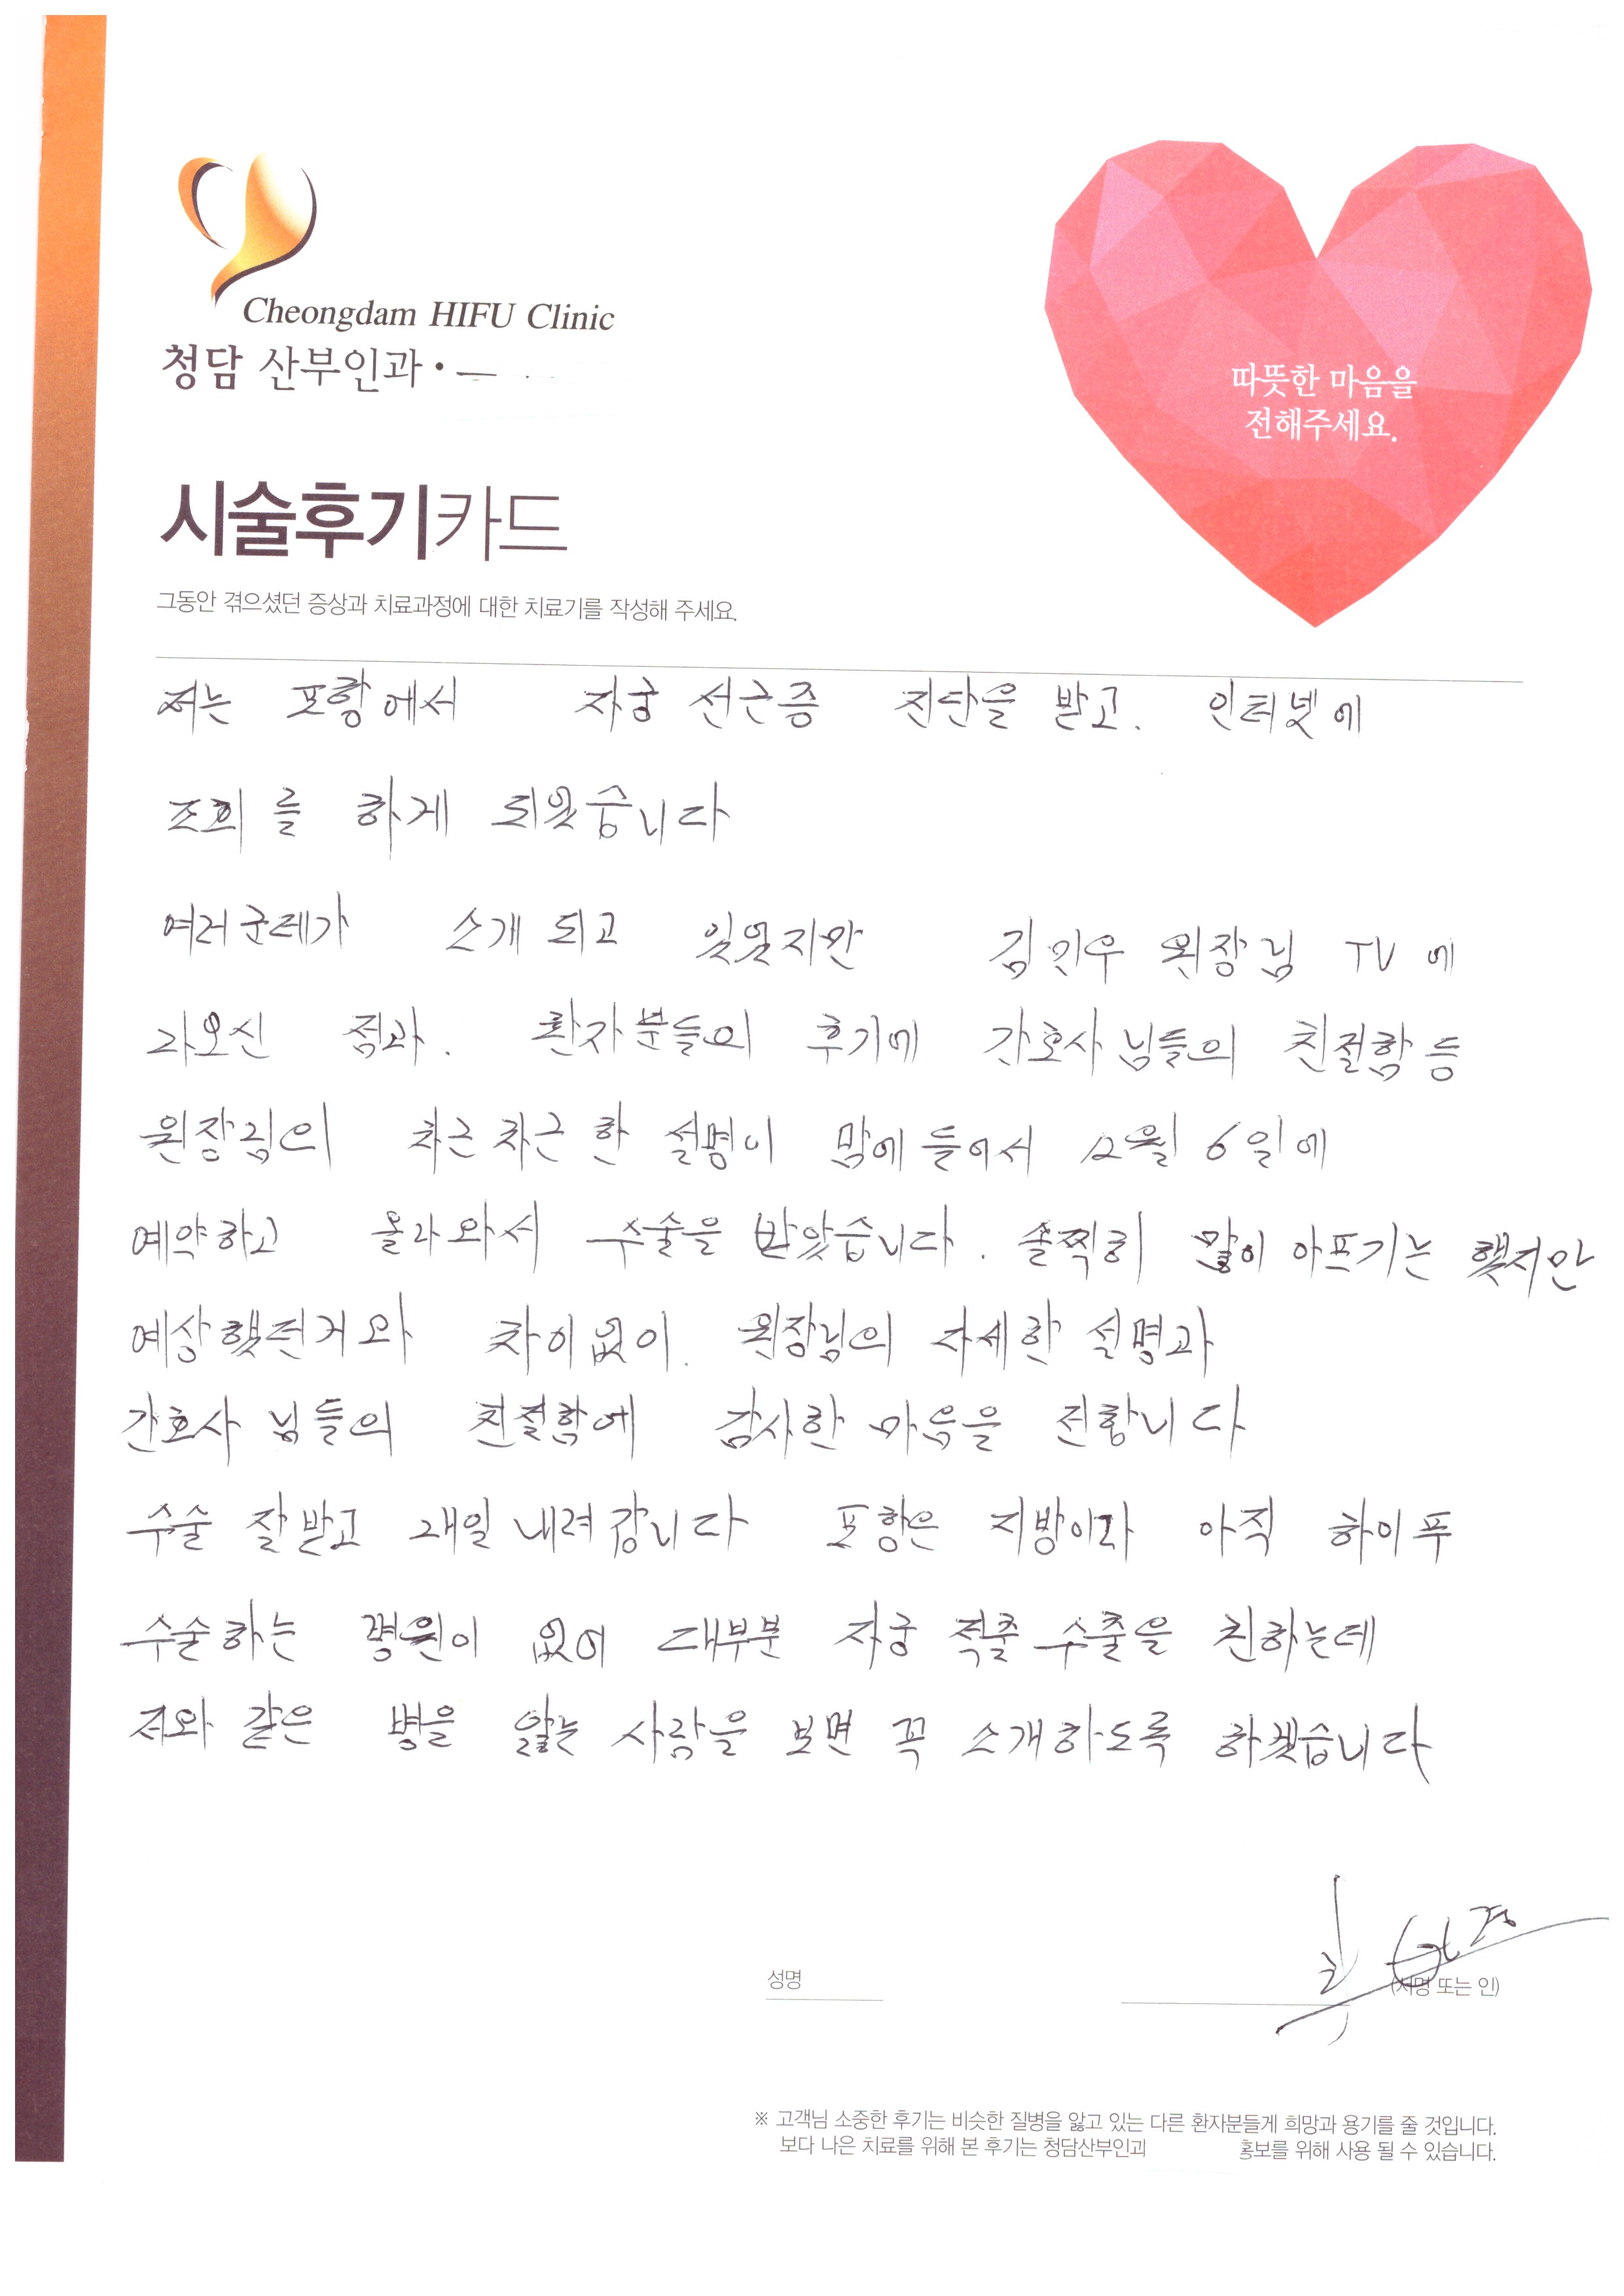 Cheongdam HIFU Clinic
청담 산부인과 •
따뜻한 마음을
전해주세요.
시술후기카드
그동안 겪으셨던 증상과 치료과정에 대한 치료기를 작성해 주세요.
저는 포항에서 자궁 선근증 진단을 받고. 인터넷에
조회를 하게 되었습니다
여러군데가 소개 되고 있었지만 김민우 원장님 TV에
나오신 점과. 환자분들의 후기에 간호사님들의 친절함 등
원장님의 차근차근한 설명이 맘에 들어서 12월 6일에
예약하고 올라와서 수술을 받았습니다. 솔찍히 많이 아프기는 했지만
예상했던거와 차이없이. 원장님의 자세한 설명과
간호사님들의 친절함에 감사한 마음을 전합니다
수술 잘받고 내일 내려갑니다 포항은 지방이라 아직 하이푸
수술하는 병원이 없어 대부분 자궁 적출 수출을 권하는데
저와 같은 병을 앓는 사람을 보면 꼭 소개하도록 하겠습니다
성명 (서명 또는 인)
※ 고객님 소중한 후기는 비슷한 질병을 앓고 있는 다른 환자분들게 희망과 용기를 줄 것입니다.
보다 나은 치료를 위해 본 후기는 청담산부인과 홍보를 위해 사용 될 수 있습니다.